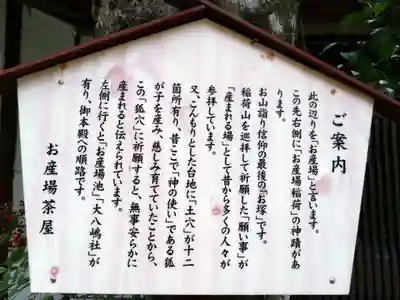 ご案内
此の辺りを「お産場」と言います。
この先右側に「お産場稲荷」の神蹟があ
ります。
お山詣り信仰の最後の『お塚』です。
稲荷山を巡拝し祈願した「願い事」が
「産まれる場」として昔から多くの人々が
参拝しています。
又、こんもりとした台地に「土穴」が十二
箇所有り、昔ここで「神の使い」である狐
が子を産み、慈しみ育てていたことから、
この「狐穴」に祈願すると、無事安らかに
産まれると伝えられています。
左側に行くと「お産場池」「大八嶋社」が
有り、御本殿への順路です。
お産場茶屋